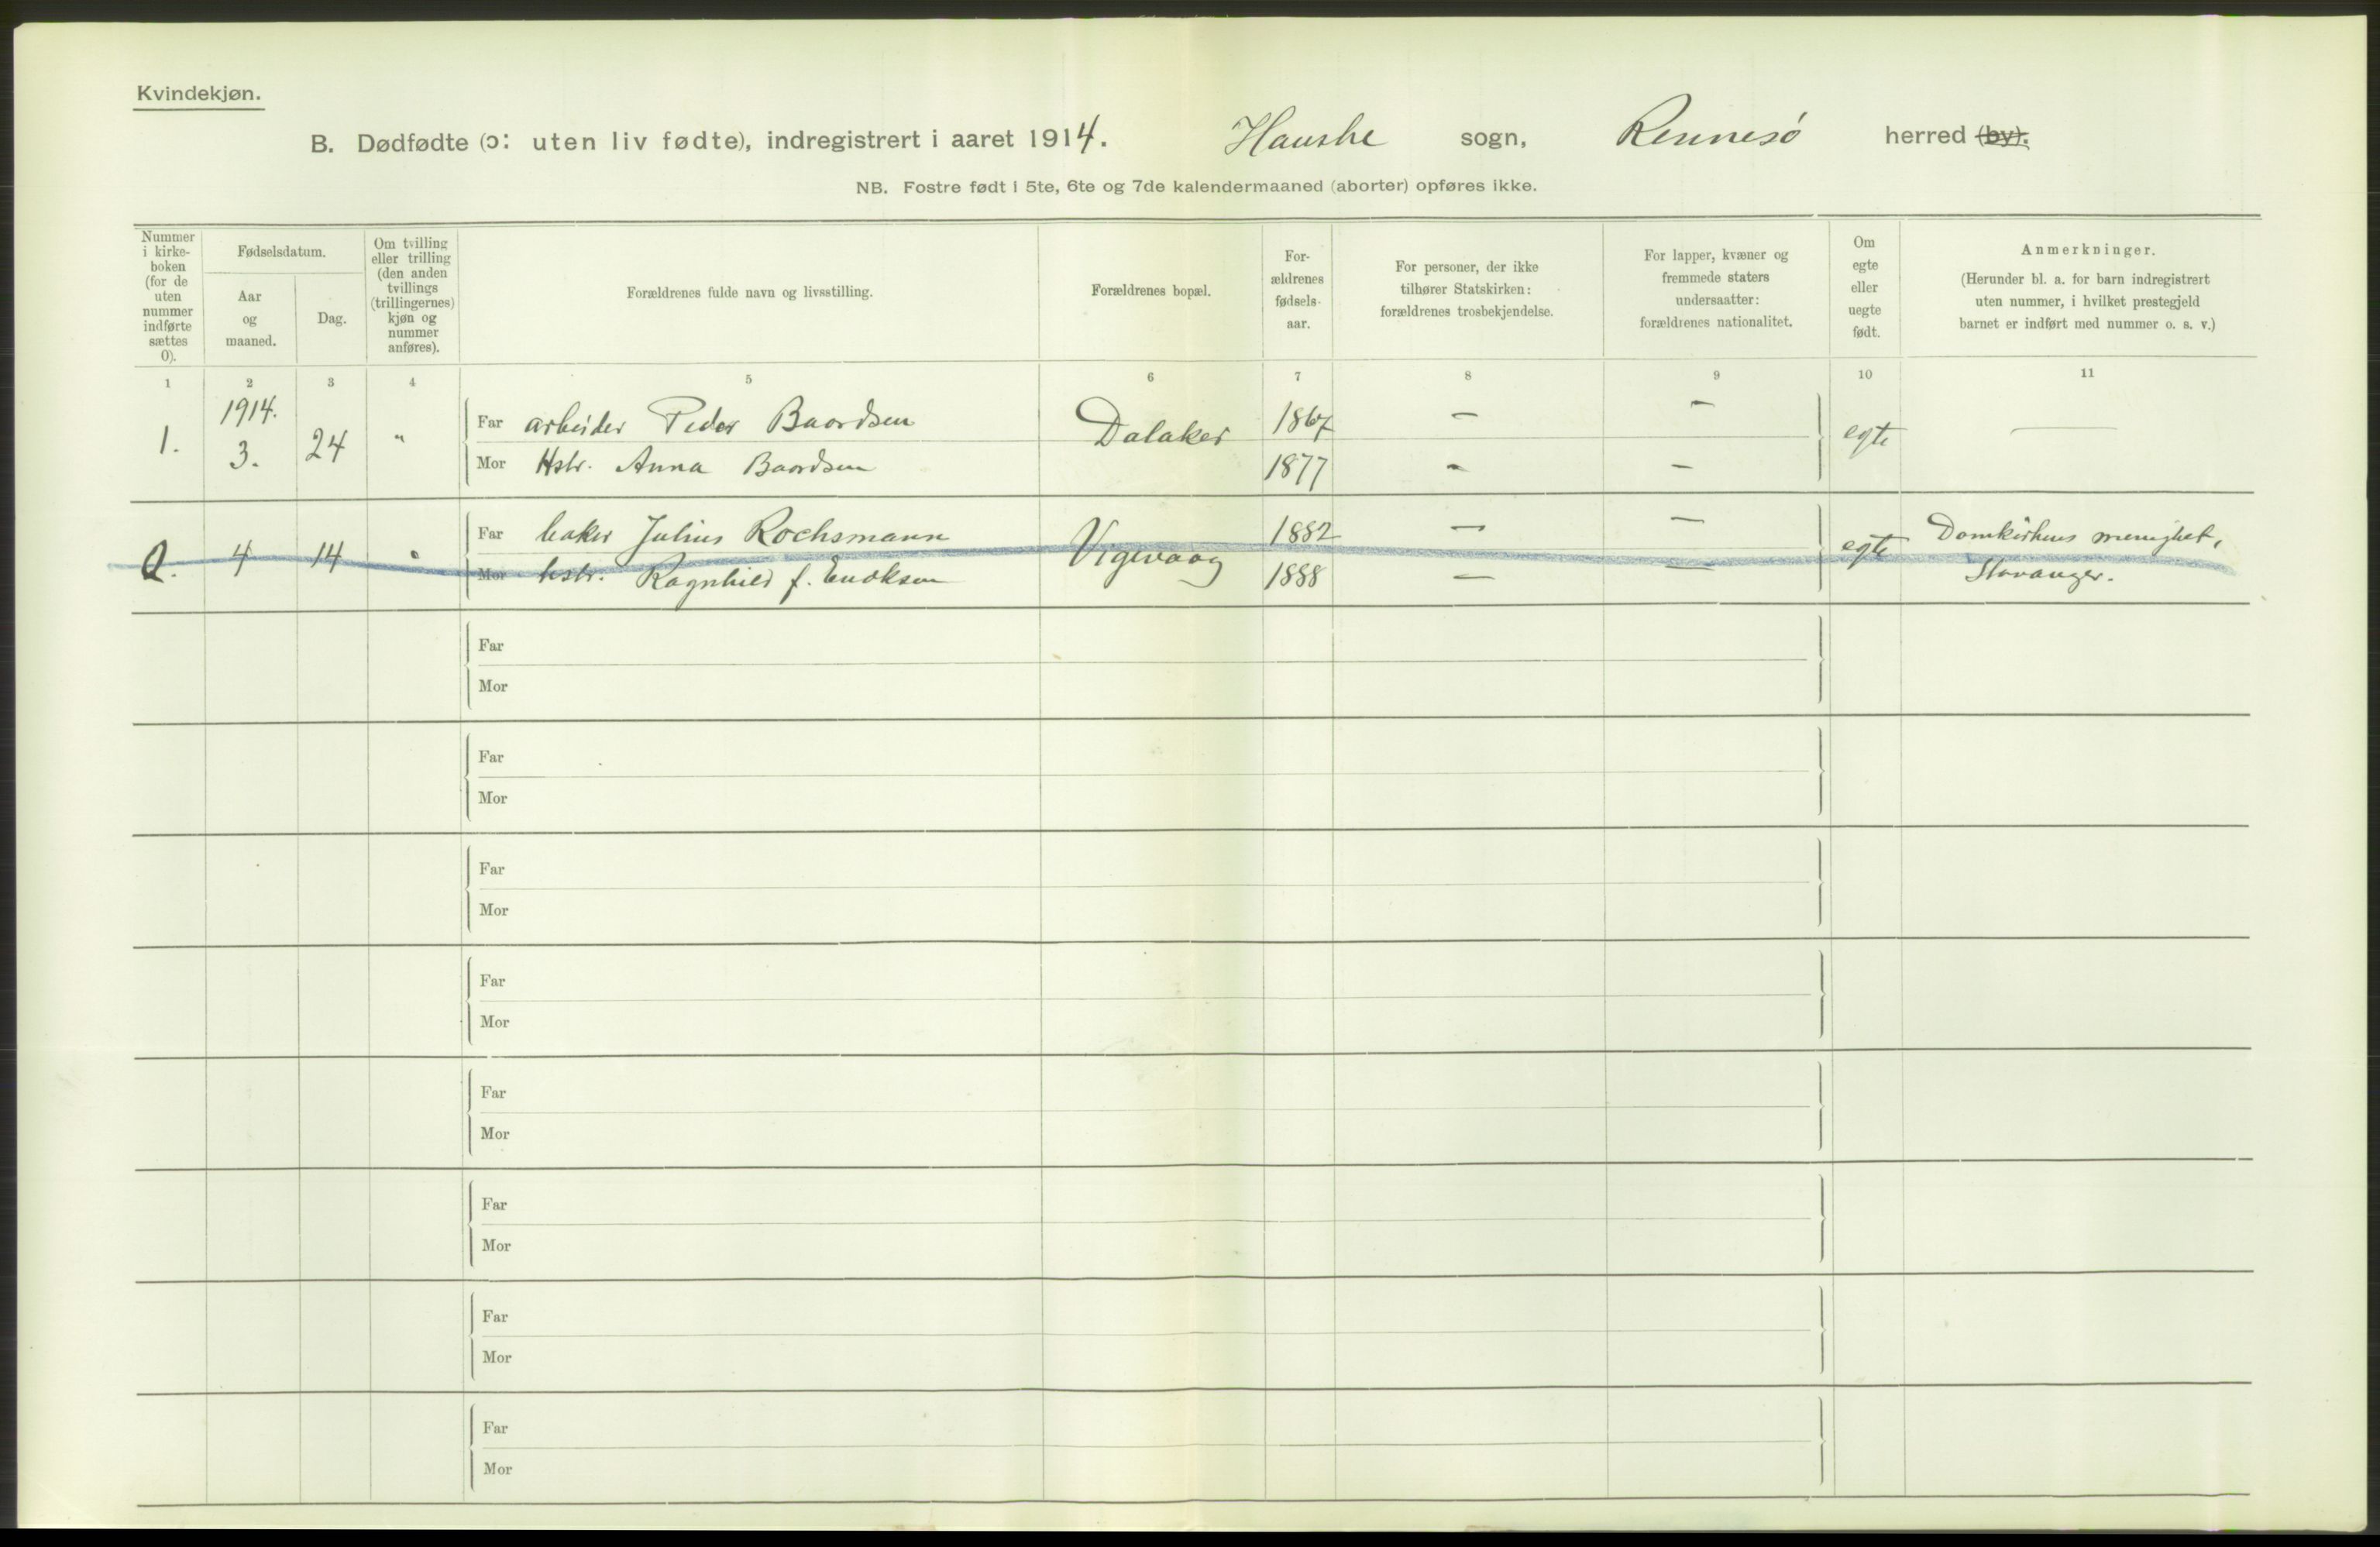 Kvindekjøn.
B. Dødfødte (ɔ: uten liv fødte), indregistrert i aaret 1914. Hauske sogn, Rennesö herred (by).
NB. Fostre født i 5te, 6te og 7de kalendermaaned (aborter) opføres ikke.
Nummer
i kirke-
boken
(for de
uten
nummer
indførte
sættes
0).
Fødselsdatum.
Aar
og
maaned.
Dag.
Om tvilling
eller trilling
(den anden
tvillings
(trillingernes)
kjøn og
nummer
anføres).
Forældrenes fulde navn og livsstilling.
Forældrenes bopæl.
For-
ældrenes
fødsels-
aar.
For personer, der ikke
tilhører Statskirken:
forældrenes trosbekjendelse.
For lapper, kvæner og
fremmede staters
undersaatter:
forældrenes nationalitet.
Om
egte
eller
uegte
født.
Anmerkninger.
(Herunder bl. a. for barn indregistrert
uten nummer, i hvilket prestegjeld
barnet er indført med nummer o. s. v.)
1 2 3 4 5 6 7 8 9 10 11
1914.
1. 3. 24 "
Far arbeider Peder Baardsen Dalaker 1867 — — egte —
Mor Hstr. Anna Baardsen 1877 - —
0. 4 14 "
Far baker Julius Rochsmann Vigevaag 1882 — — egte Domkirkens menighet,
Mor hstr. Ragnhild f. Enoksen 1888 — — Stavanger.
Far
Mor
Far
Mor
Far
Mor
Far
Mor
Far
Mor
Far
Mor
Far
Mor
Far
Mor